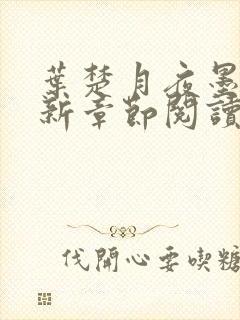 葉楚月夜墨
新章節閱讀
伐開心要喫糖